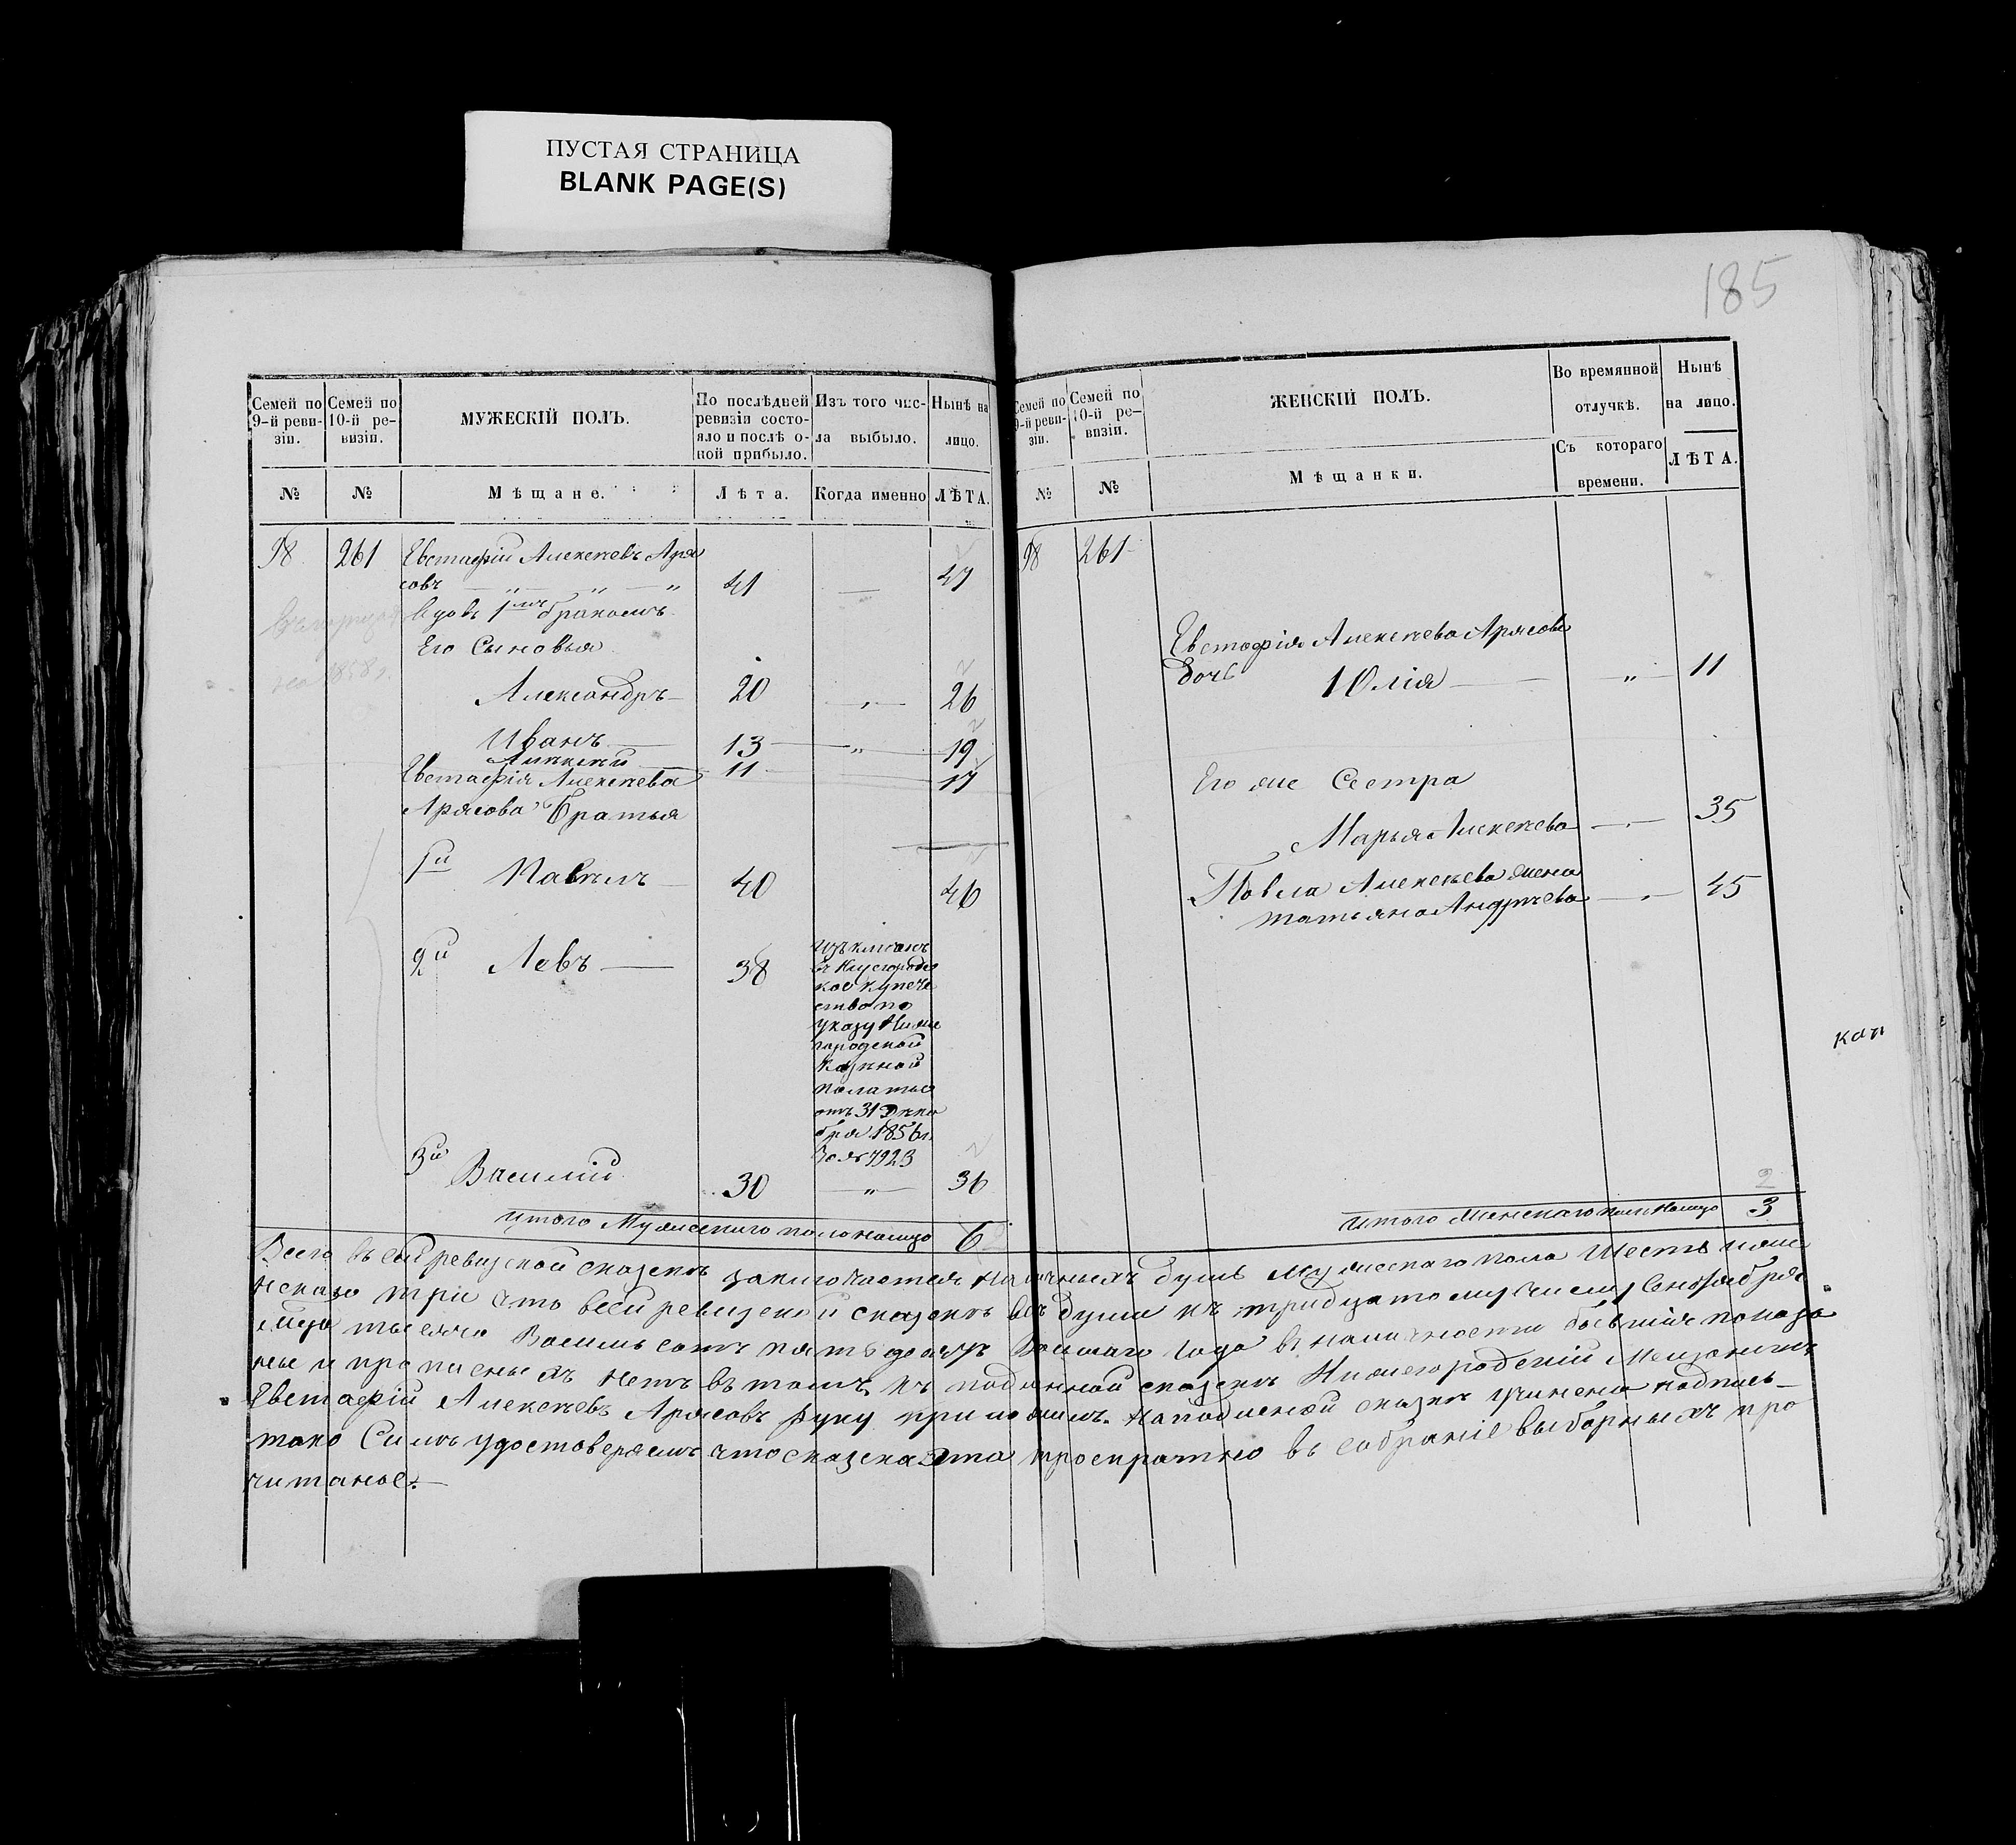 ПУСТАЯ СТРАНИЦА
BLANK PAGE(S)
185
Семей по 9-й реви-зіи.
Семей по 10-й ре-визіи.
МУЖЕСКІЙ ПОЛЪ.
По послѣдней ревизіи состо-яло и послѣ о-ной прибыло.
Изъ того чис-ла выбыло.
Нынѣ на лицо.
№ № Мѣщане. Лѣта. Когда именно ЛѢТА.
98 261 Евстафій Алексѣевъ Аря
совъ 41 — 47
вдовъ 1мъ бракомъ
Его Сыновья
на 1858 г.
Александръ 20 „ 26
Иванъ 13 „ 19
Алексѣй 11 17
Евстафія Алексѣева
Арясова Братья
1й Павелъ 40 46
2й Левъ 38
въ Нижегородс
кое купече
ство по
указу Ниже
городской
Казенной
палаты
отъ 31 Дека
бря 1856 г.
За № 7923
3й Василій 30 „ 36
Итого Мужескаго пола налицо 6
Семей по 9-й реви-зіи.
Семей по 10-й ре-визіи.
ЖЕНСКІЙ ПОЛЪ.
Во времянной отлучкѣ.
Нынѣ на лицо.
№ № Мѣщанки. Съ котораго времени. ЛѢТА.
98 261
Евстафія Алексѣева Арясова
дочь Юлія „ 11
Его же Сестра
Марья Алексѣева 35
Павла Алексѣева жена
Татьяна Андреева 45
кап
2
Итого Женскаго пола налицо 3
Всего въ сей ревизской сказкѣ заключается наличныхъ душъ Мужескаго пола Шесть и же
нскаго три что всей ревизской сказкѣ всѣ души къ тридцатому числу Сентября
мѣсяца тысяча Восемь сотъ пятьдесятъ Восьмаго Года въ наличности бывшія показа
ны и прописныхъ нетъ въ томъ къ подлинной сказкѣ Нижегородскій Мещанинъ
Евстафій Алексѣевъ Арясовъ руку приложилъ. На подлиной сказке учинена надпись
тако Симъ удостоверяемъ что сказка эта троекратно въ собраніе выборныхъ про
читана.